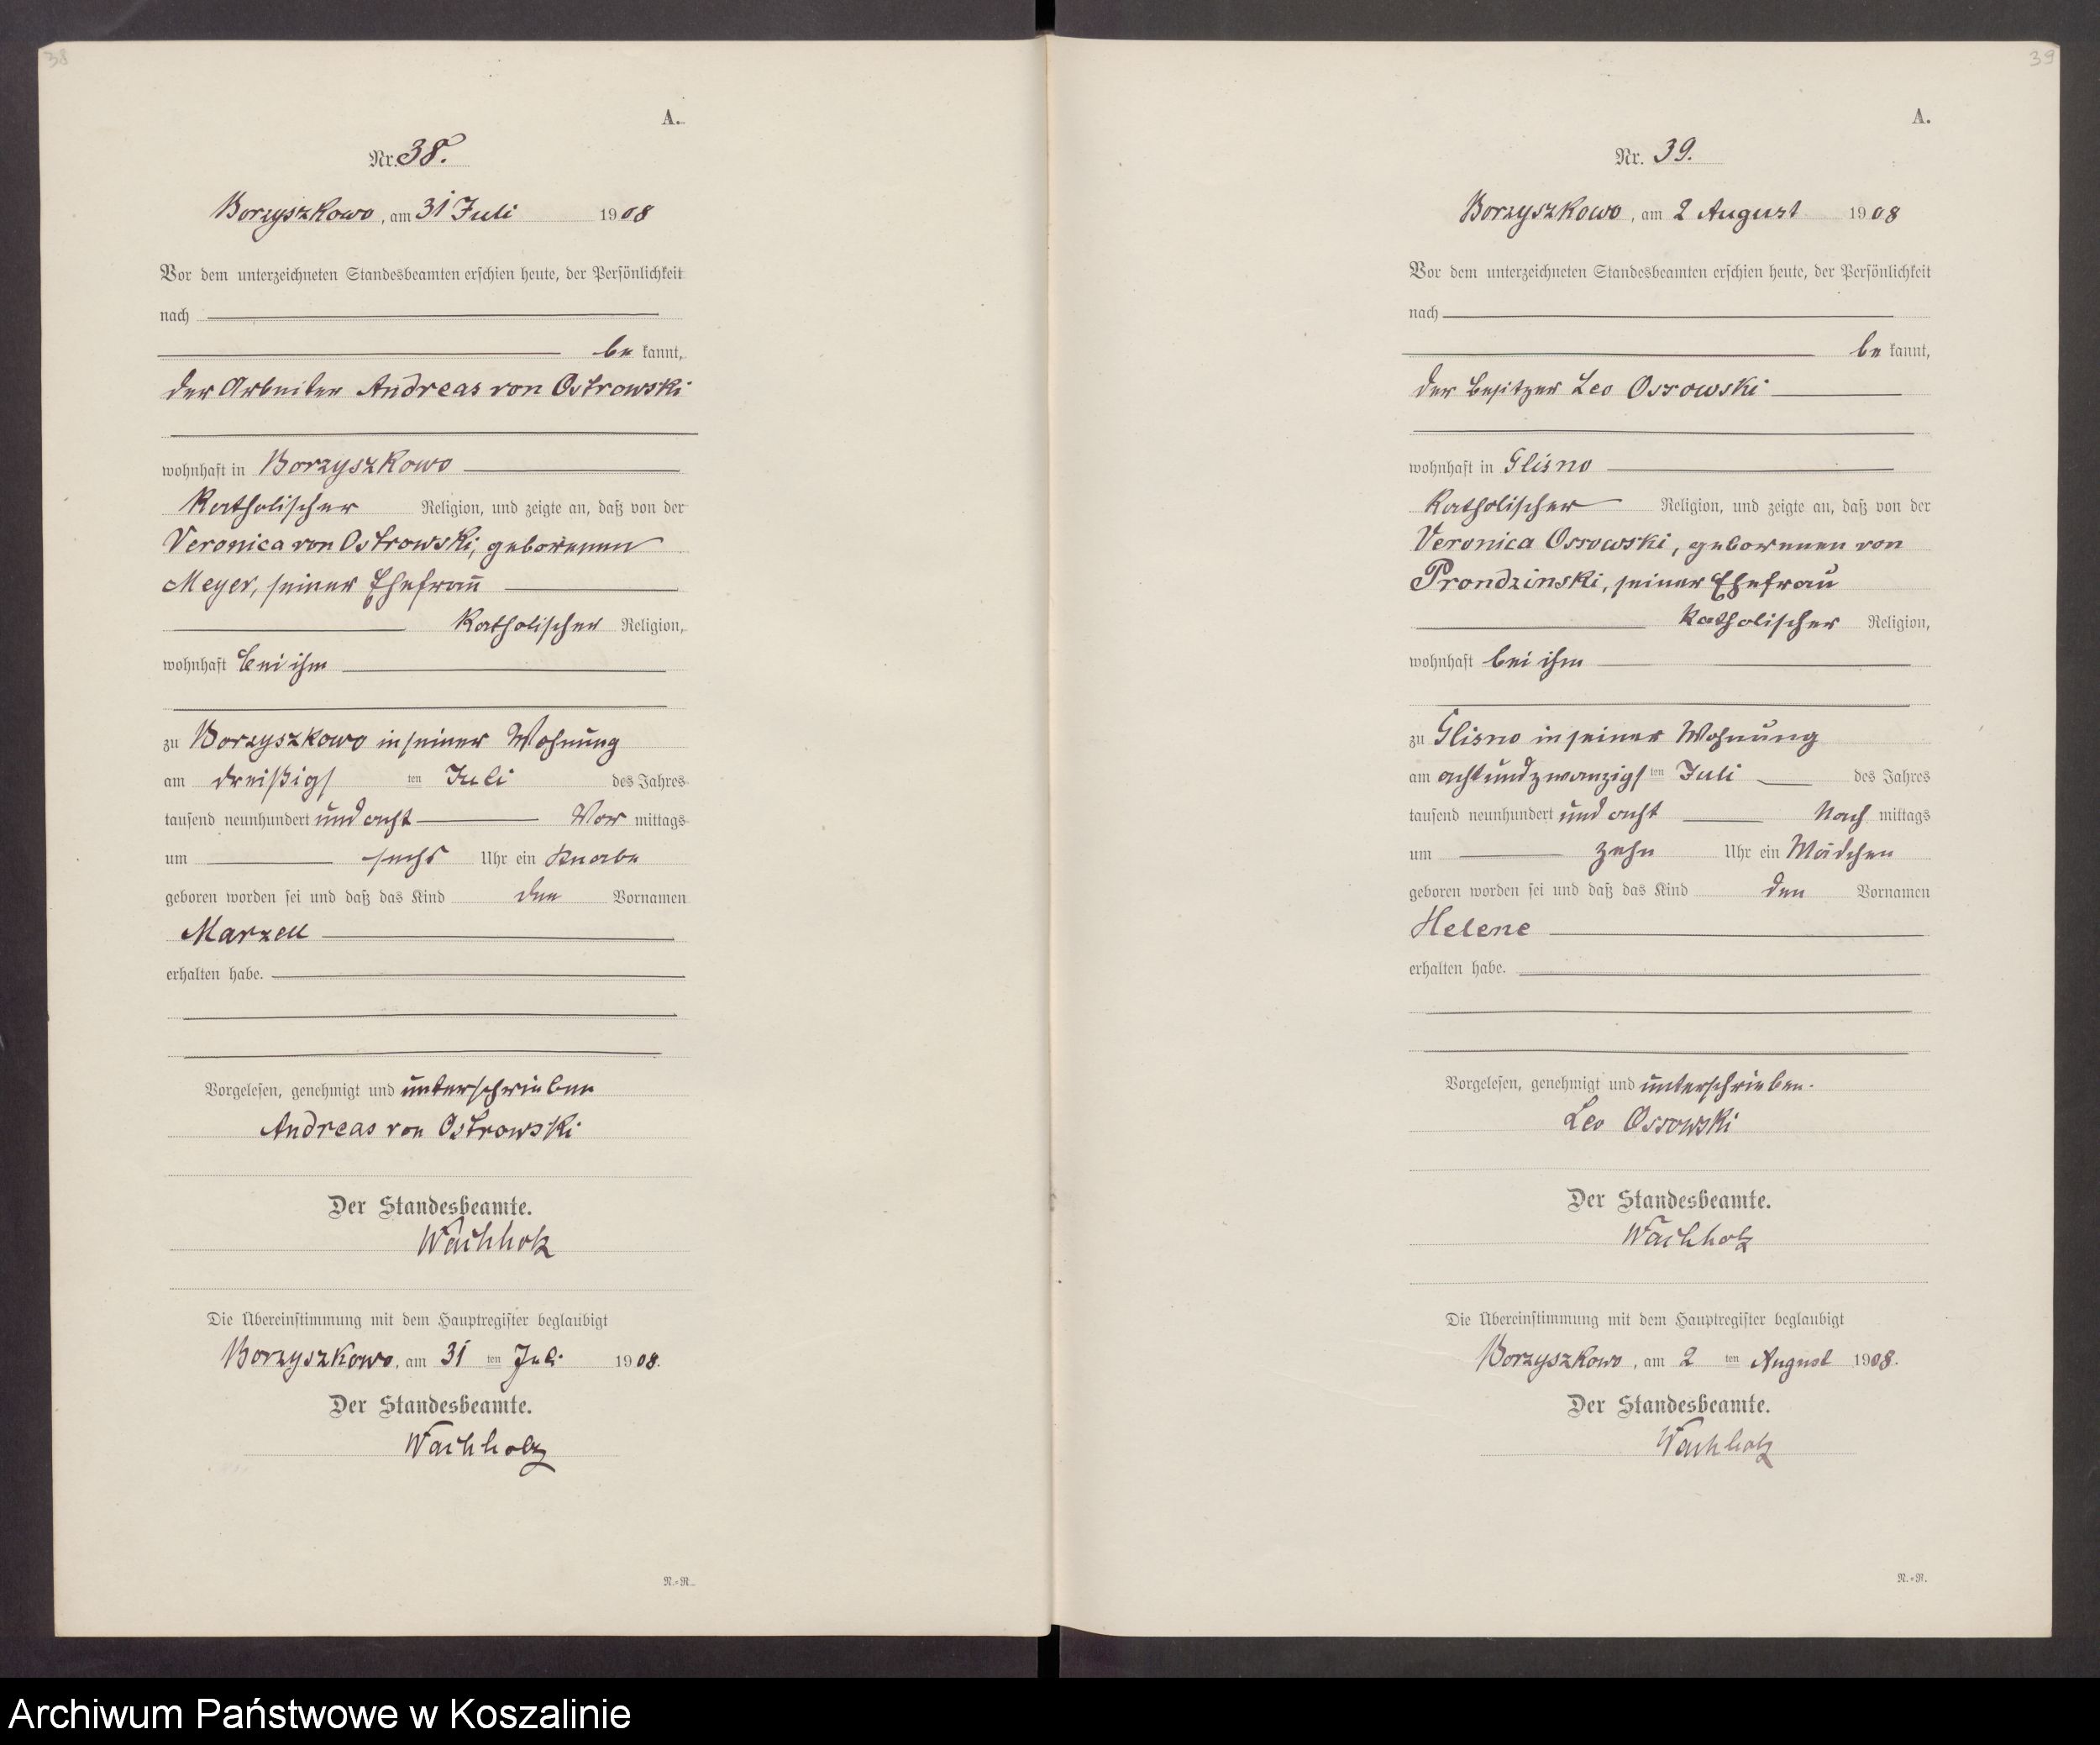 38
A.
Nr. 38.
Borzyszkowo, am 31 Juli 1908
Vor dem unterzeichneten Standesbeamten erschien heute, der Persönlichkeit
nach
be kannt,
der Arbeiter Andreas von Ostrowski
wohnhaft in Borzyszkowo
Katholischer Religion, und zeigte an, daß von der
Veronica von Ostrowski, geborenen
Meyer, seiner Ehefrau
Katholischer Religion,
wohnhaft bei ihm
zu Borzyszkowo in seiner Wohnung
am dreißigs ten Juli des Jahres
tausend neunhundert und acht Vor mittags
um sechs Uhr ein Knabe
geboren worden sei und daß das Kind den Vornamen
Marzell
erhalten habe.
Vorgelesen, genehmigt und unterschrieben
Andreas von Ostrowski
Der Standesbeamte.
Wachholz
Die Übereinstimmung mit dem Hauptregister beglaubigt
Borzyszkowo, am 31 ten Juli 1908.
Der Standesbeamte.
Wachholz
N.=R.
39
A.
Nr. 39.
Borzyszkowo, am 2 August 1908
Vor dem unterzeichneten Standesbeamten erschien heute, der Persönlichkeit
nach
be kannt,
der Besitzer Leo Ossowski
wohnhaft in Glisno
Katholischer Religion, und zeigte an, daß von der
Veronica Ossowski, geborenen von
Prondzinski, seiner Ehefrau
Katholischer Religion,
wohnhaft bei ihm
zu Glisno in seiner Wohnung
am achtundzwanzigs ten Juli des Jahres
tausend neunhundert und acht Nach mittags
um zehn Uhr ein Mädchen
geboren worden sei und daß das Kind den Vornamen
Helene
erhalten habe.
Vorgelesen, genehmigt und unterschrieben.
Leo Ossowski
Der Standesbeamte.
Wachholz
Die Übereinstimmung mit dem Hauptregister beglaubigt
Borzyszkowo, am 2 ten August 1908.
Der Standesbeamte.
Wachholz
N.=R.
Archiwum Państwowe w Koszalinie